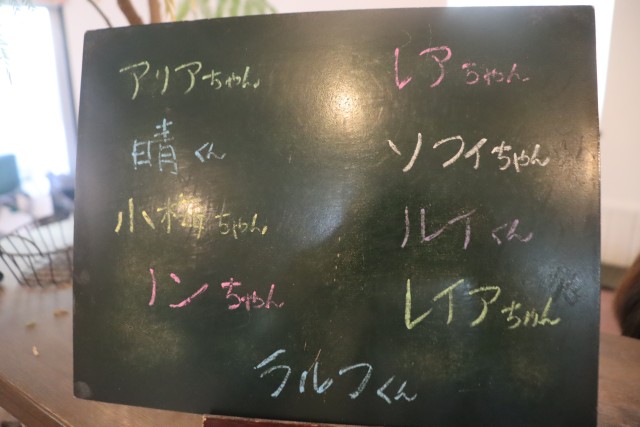 アリアちゃん
晴くん
小梅ちゃん
ノンちゃん
レアちゃん
ソフィちゃん
ルイくん
レイアちゃん
ラルフくん